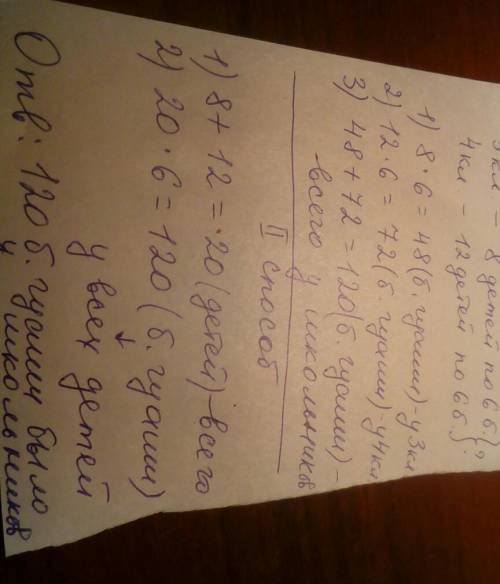 3кл - 8 детей по 6б.} ?
4кл - 12 детей по 6б.}
1) 8 · 6 = 48 (б. гуаши) - у 3кл
2) 12 · 6 = 72 (б. гуаши) - у 4кл
3) 48 + 72 = 120 (б. гуаши) -
всего у школьников
II способ
1) 8 + 12 = 20 (детей) - всего
2) 20 · 6 = 120 (б. гуаши)
у всех детей
Отв: 120 б. гуаши было
у школьников